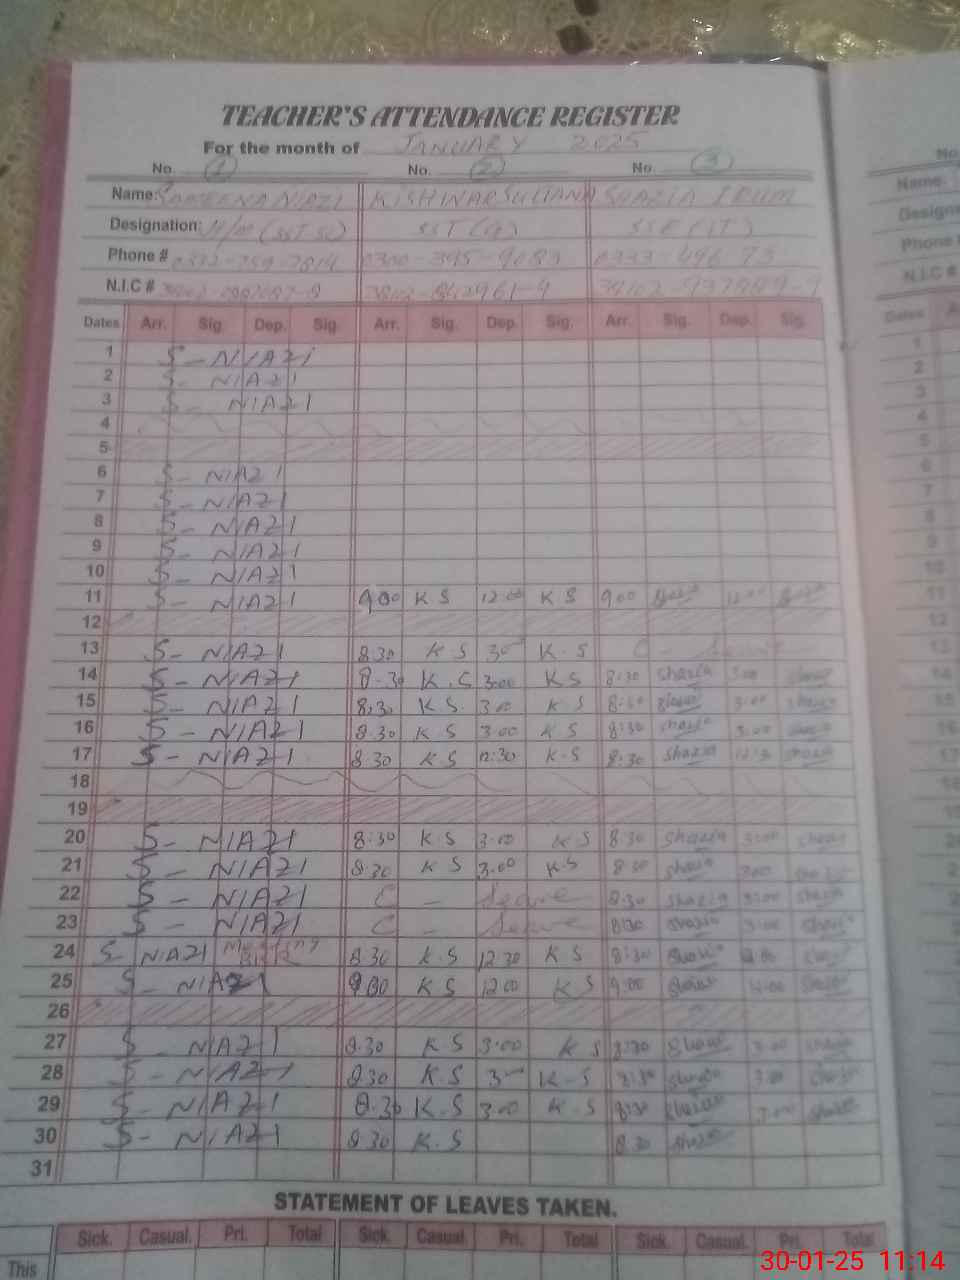 TEACHER'S ATTENDANCE REGISTER
For the month of JANUARY 2025
No. 1 No. 2 No. 3
Name: SABEENA NIAZI KISHWAR SULTANA SHAZIA IRUM
Designation: H/M (SST SC) SST (G) SSE (IT)
Phone #
N.I.C #
Dates Arr. Sig. Dep. Sig. Arr. Sig. Dep. Sig. Arr. Sig. Dep. Sig.
1 S - NIAZI
2 S - NIAZI
3 S NIAZI
4
5
6 S - NIAZI
7 S - NIAZI
8 S - NIAZI
9 S - NIAZI
10 S - NIAZI
11 S - NIAZI 9:00 K S 12:00 K S 9:00
12
13 S - NIAZI 8:30 K.S 3:00 K.S C - Leave
14 S - NIAZI 8:30 K.S 3:00 K S 8:30 Shazia 3:00 Shazia
15 S - NIAZI 8:30 K S 3:00 K S 8:30 Shazia 3:00 Shazia
16 S - NIAZI 8:30 K S 3:00 K S 8:30 Shazia 3:00 Shazia
17 S - NIAZI 8:30 K.S 12:30 K.S 8:30 Shazia 12:30 Shazia
18
19
20 S - NIAZI 8:30 K.S 3:00 K S 8:30 Shazia 3:00 Shazia
21 S - NIAZI 8:30 K S 3:00 K.S 8:30 Shazia 3:00 Shazia
22 S - NIAZI C - Leave 8:30 Shazia 3:00 Shazia
23 S - NIAZI C - Leave 8:30 Shazia 3:00 Shazia
24 S NIAZI Meeting 8:30 K.S 12:30 K S 8:30 Shazia Shazia
25 S - NIAZI 9:00 K S 12:00 K S 9:00 Shazia Shazia
26
27 S - NIAZI 8:30 K S 3:00 K S 8:30 Shazia 3:00 Shazia
28 S - NIAZI 8:30 K.S 3:00 K-S 8:30 Shazia 3:00 Shazia
29 S - NIAZI 8:30 K.S 3:00 K.S 8:30 Shazia 3:00 Shazia
30 S - NIAZI 8:30 K.S 8:30 Shazia
31
STATEMENT OF LEAVES TAKEN.
Sick. Casual. Pri. Total Sick. Casual. Pri. Total Sick. Casual. Pri. Total
This
30-01-25 11:14